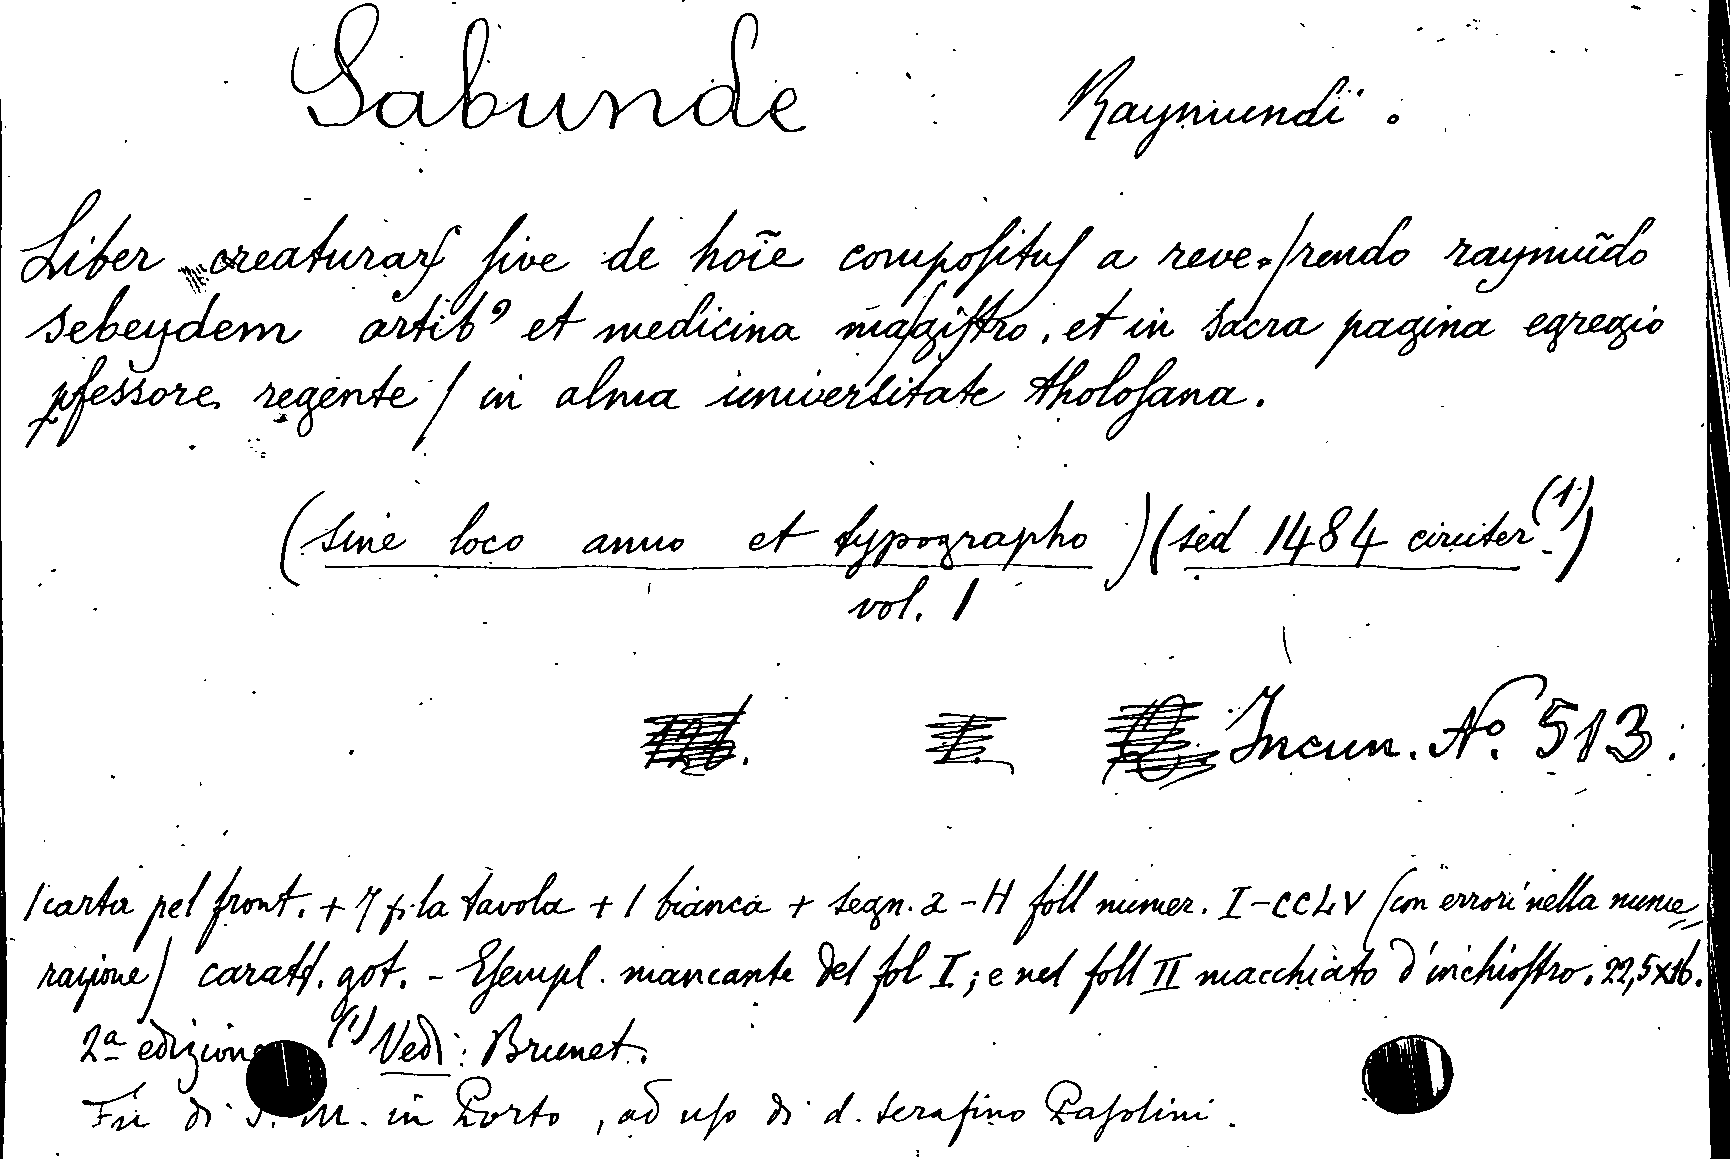 Sabunde Raymundi.
Liber creaturarꝝ ſive de hoīe compoſituſ a reve-/rendo raymūdo
sebeydem artibꝰ et medicina ma/giſtro, et in sacra pagina egregio
ꝓfessore regente / in alma universitate tholoſana.
(sine loco anno et typographo) (sed 1484 circiter (1))
vol. 1
Incun. Nº. 513.
1 carta pel front. + 7 p. la tavola + 1 bianca + segn. a - H foll numer. I-CCLV (con errori nella nume=
razione) caratt. got. - Eſempl. mancante del fol I; e nel foll II macchiato d'inchioſtro. 22,5x16.
2ª edizione (1) Vedi: Brunet.
Fu di S. M. in Porto, ad uſo di d. Serafino Paſolini.